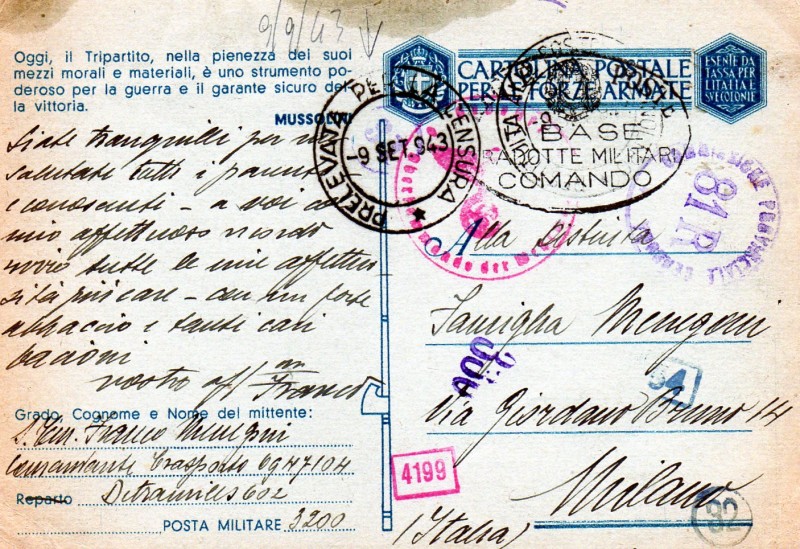 9/9/43
Oggi, il Tripartito, nella pienezza dei suoi
mezzi morali e materiali, è uno strumento po-
deroso per la guerra e il garante sicuro del-
la vittoria.
MUSSOLINI
CARTOLINA POSTALE
PER LE FORZE ARMATE
ESENTE DA
TASSA PER
L'ITALIA E
SUE COLONIE
PRELEVATA CENSURA
-9 SET. 943
BASE
TRADOTTE MILITARI
COMANDO
81 R
Siate tranquilli per me
salutate tutti i parenti
e conoscenti - a voi il
mio affettuoso ricordo
tutte le mie
più care - un forte
abbraccio e tanti cari
bacioni
vostro aff/mo
Franco
Alla Distinta
Famiglia Menegoni
Via Giordano Bruno 14
Milano
(Italia)
Grado, Cognome e Nome del mittente:
S. Ten. Franco Menegoni
Comandante Trasporto 6947104
Reparto
POSTA MILITARE 3200
4199
54
92